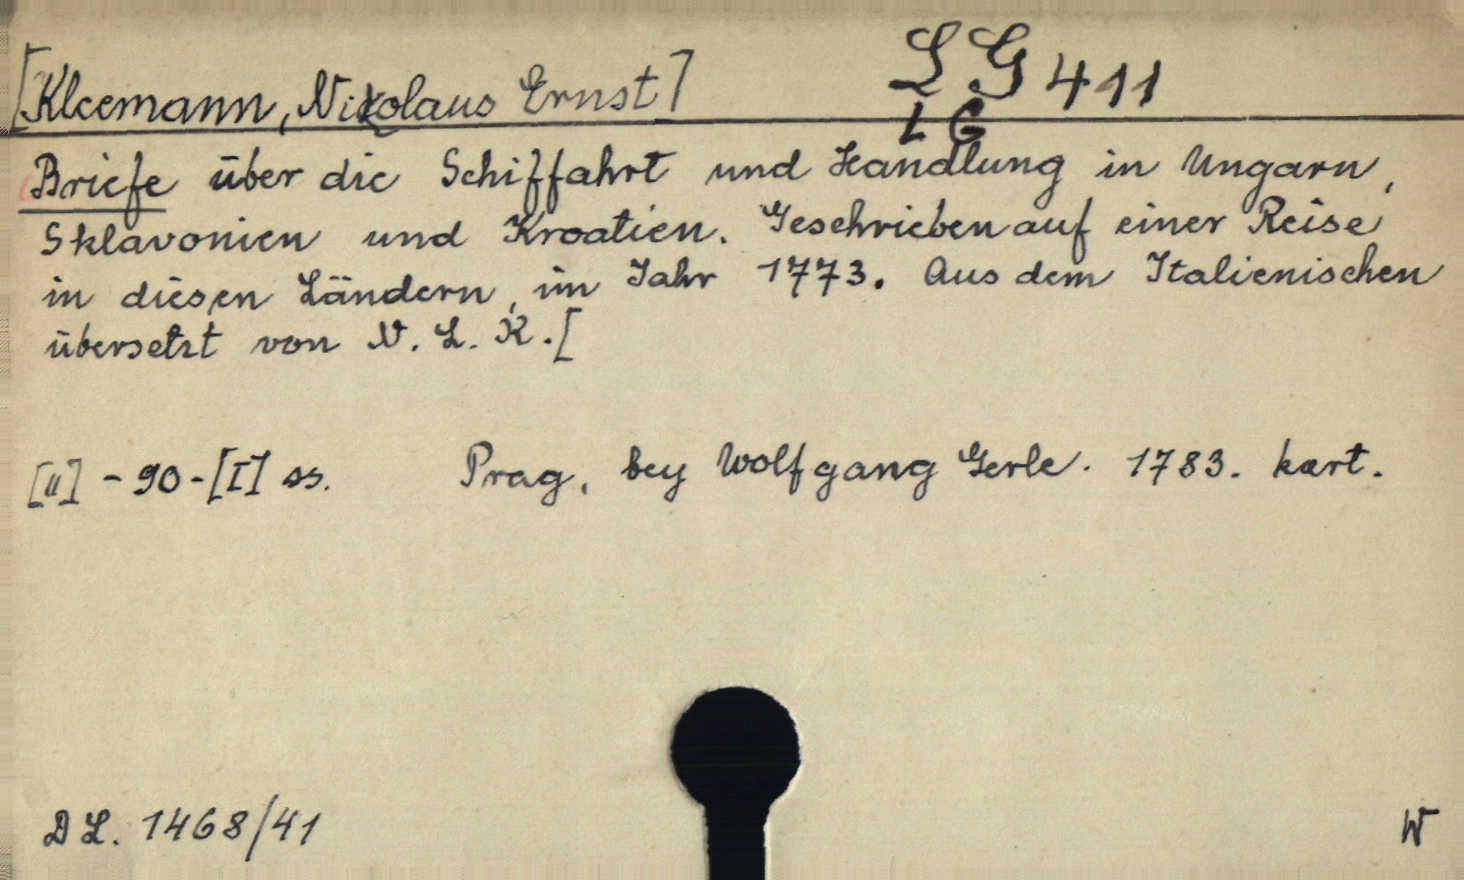 [Kleemann, Nikolaus Ernst] LG 411
LG
Briefe über die Schiffahrt und Handlung in Ungarn,
Sklavonien und Kroatien. Geschrieben auf einer Reise
in diesen Ländern, im Jahr 1773. Aus dem Italienischen
übersetzt von N. L. K. [
[II] - 90 - [I] ss. Prag, bey Wolfgang Gerle. 1783. kart.
DL. 1468/41 W